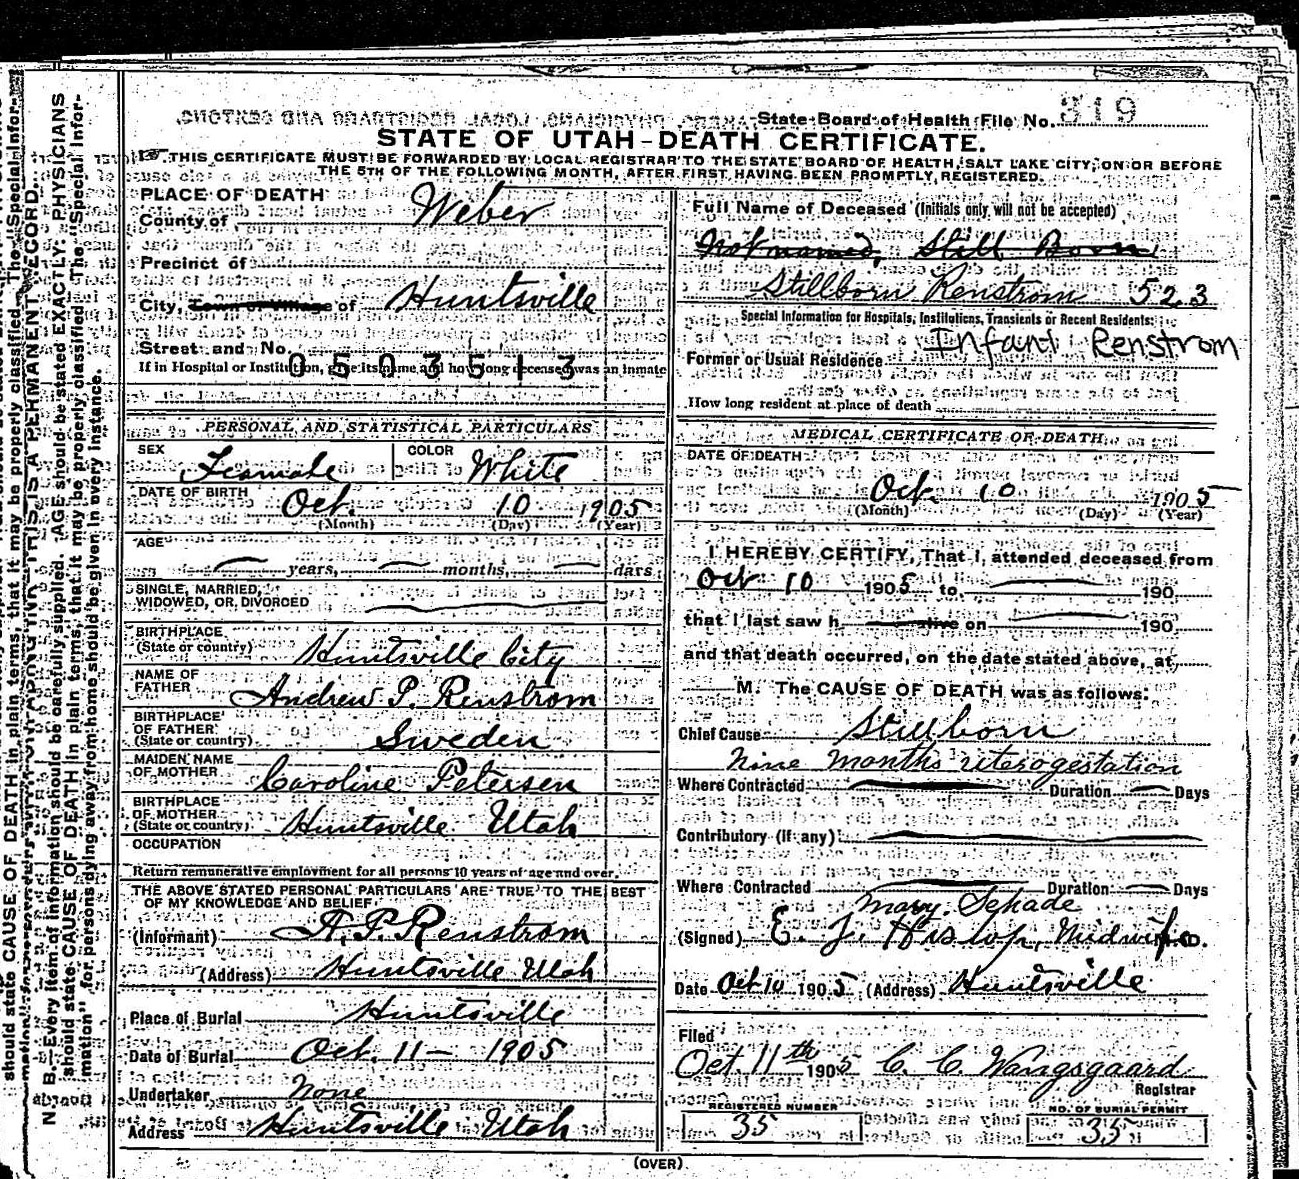 State Board of Health File No. 319
STATE OF UTAH-DEATH CERTIFICATE.
THIS CERTIFICATE MUST BE FORWARDED BY LOCAL REGISTRAR TO THE STATE BOARD OF HEALTH, SALT LAKE CITY, ON OR BEFORE
THE 5TH OF THE FOLLOWING MONTH, AFTER FIRST HAVING BEEN PROMPTLY REGISTERED.
PLACE OF DEATH
County of Weber
Precinct of
City, Town or Village of Huntsville
Street and No.
0503513
If in Hospital or Institution, give its name and how long deceased was an inmate
PERSONAL AND STATISTICAL PARTICULARS
SEX Feamale COLOR White
DATE OF BIRTH Oct. 10 1905
(Month) (Day) (Year)
AGE
years, months, days
SINGLE, MARRIED,
WIDOWED, OR DIVORCED
BIRTHPLACE
(State or country) Huntsville City
NAME OF
FATHER Andrew P. Renstrom
BIRTHPLACE
OF FATHER
(State or country) Sweden
MAIDEN NAME
OF MOTHER Caroline Petersen
BIRTHPLACE
OF MOTHER
(State or country) Huntsville Utah
OCCUPATION
Return remunerative employment for all persons 10 years of age and over.
THE ABOVE STATED PERSONAL PARTICULARS ARE TRUE TO THE BEST
OF MY KNOWLEDGE AND BELIEF
(Informant) A. P. Renstrom
(Address) Huntsville Utah
Place of Burial Huntsville
Date of Burial Oct. 11 - 1905
Undertaker None
Address Huntsville Utah
Full Name of Deceased (Initials only will not be accepted)
Not named, Still Born
Stillborn Renstrom 523
Special Information for Hospitals, Institutions, Transients or Recent Residents:
Infant Renstrom
Former or Usual Residence
How long resident at place of death
MEDICAL CERTIFICATE OF DEATH
DATE OF DEATH
Oct. 10 1905
(Month) (Day) (Year)
I HEREBY CERTIFY, That I attended deceased from
Oct 10 1905 to 190
that I last saw h alive on 190
and that death occurred, on the date stated above, at
M. The CAUSE OF DEATH was as follows:
Chief Cause Stillborn
Nine months uterogestation
Where Contracted Duration Days
Contributory (If any)
Where Contracted Duration Days
Mary Schade
(Signed) E. J. Hislop, Midwife
Date Oct 10 1905 (Address) Huntsville
Filed
Oct. 11th 1905 C. C. Wangsgaard
Registrar
REGISTERED NUMBER
35
NO. OF BURIAL PERMIT
35
(OVER)
N. B.—Every item of information should be carefully supplied. AGE should be stated EXACTLY. PHYSICIANS
should state CAUSE OF DEATH in plain terms, that it may be properly classified. The "Special Infor-
mation" for persons dying away from home should be given in every instance.